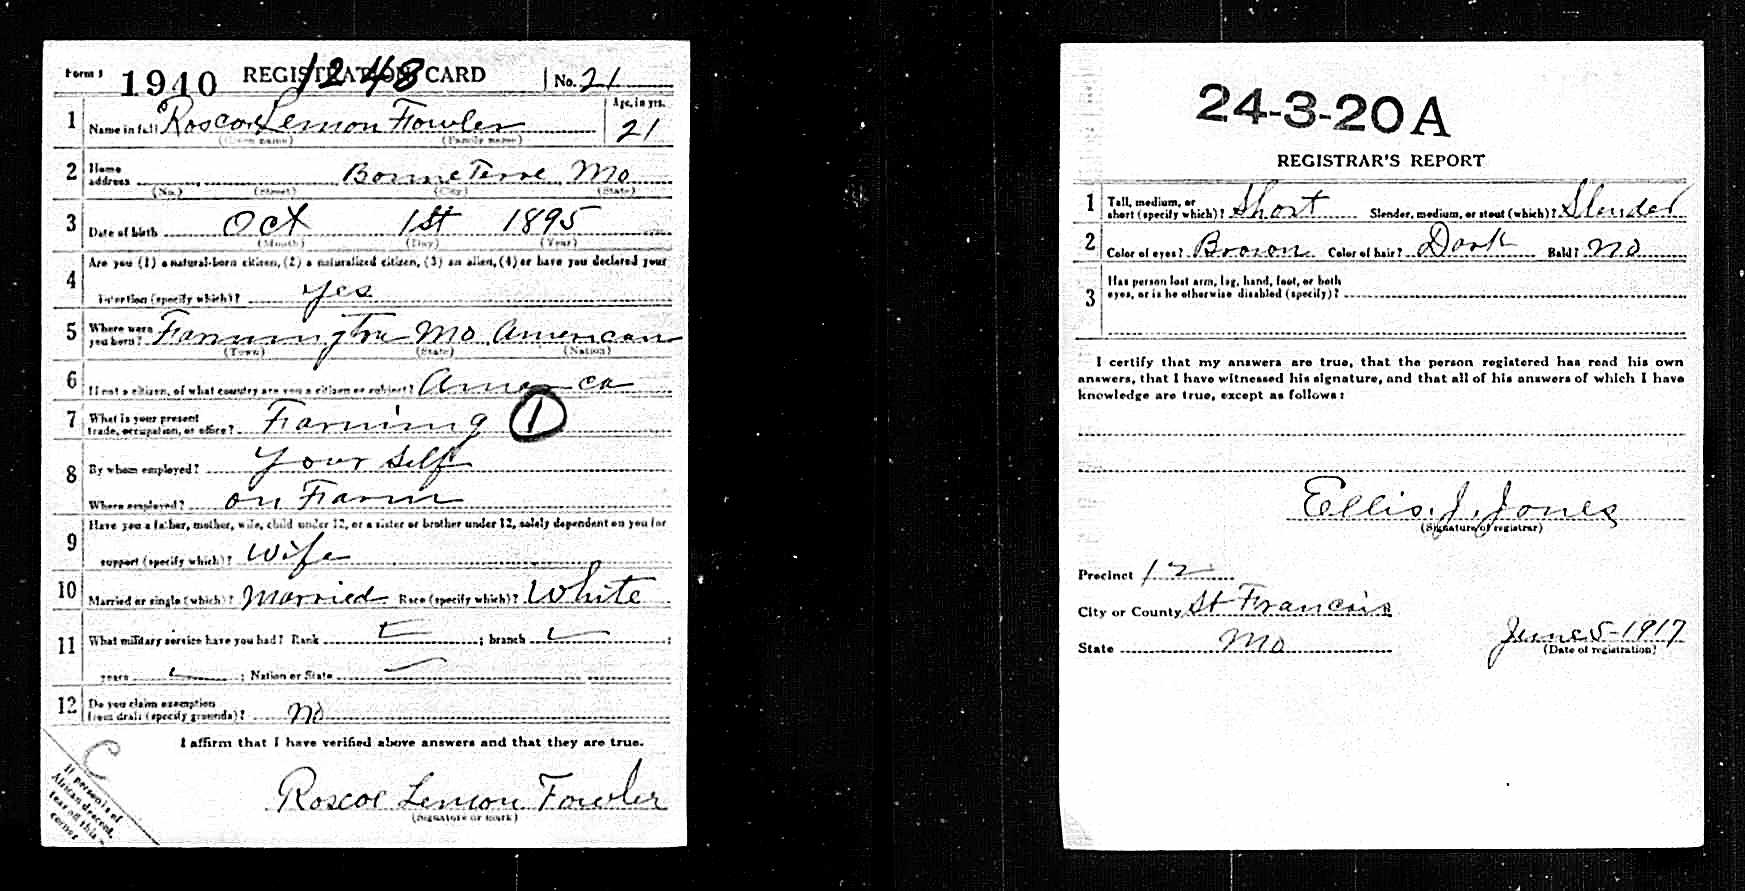 Form 1 1940 REGISTRATION CARD 1248 No. 21
1 Name in full Roscoe Lemon Fowler Age, in yrs. 21
(Given name) (Family name)
2 Home address Bonne Terre Mo
(No.) (Street) (City) (State)
3 Date of birth Oct 1st 1895
(Month) (Day) (Year)
4 Are you (1) a natural-born citizen, (2) a naturalized citizen, (3) an alien, (4) or have you declared your
intention (specify which)? yes
5 Where were you born? Farmington Mo American
(Town) (State) (Nation)
6 If not a citizen, of what country are you a citizen or subject? America
7 What is your present trade, occupation, or office? Farming 1
8 By whom employed? your self
Where employed? on Farm
9 Have you a father, mother, wife, child under 12, or a sister or brother under 12, solely dependent on you for
support (specify which)? wife
10 Married or single (which)? Married Race (specify which)? White
11 What military service have you had? Rank ; branch ;
years ; Nation or State
12 Do you claim exemption from draft (specify grounds)? No
I affirm that I have verified above answers and that they are true.
Roscoe Lemon Fowler
(Signature or mark)
C
If person is of
African descent,
tear off this
corner
24-3-20 A
REGISTRAR'S REPORT
1 Tall, medium, or short (specify which)? Short Slender, medium, or stout (which)? Slender
2 Color of eyes? Brown Color of hair? Dark Bald? No
3 Has person lost arm, leg, hand, foot, or both
eyes, or is he otherwise disabled (specify)?
I certify that my answers are true, that the person registered has read his own
answers, that I have witnessed his signature, and that all of his answers of which I have
knowledge are true, except as follows:
Ellis. J. Jones
(Signature of registrar)
Precinct 12
City or County St Francois
State Mo June 5-1917
(Date of registration)